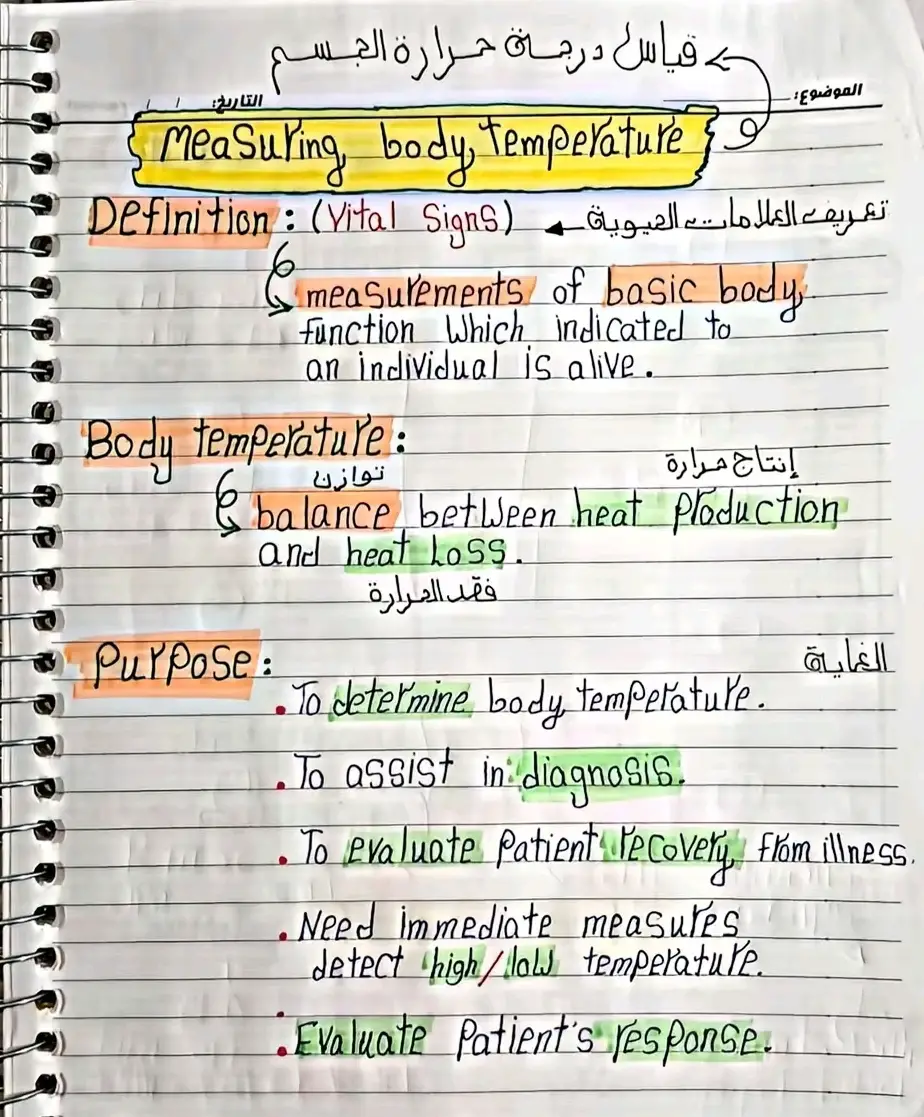 قياس درجة حرارة الجسم
الموضوع:
التاريخ: / /
Measuring body temperature
Definition: (Vital Signs) تعريف العلامات الحيوية
measurements of basic body
function which indicated to
an individual is alive.
Body temperature:
توازن إنتاج حرارة
balance between heat production
and heat Loss.
فقد الحرارة
Purpose: الغاية
. To determine body temperature.
. To assist in diagnosis.
. To evaluate Patient recovery from illness.
. Need immediate measures
detect high/low temperature.
. Evaluate Patient's response.